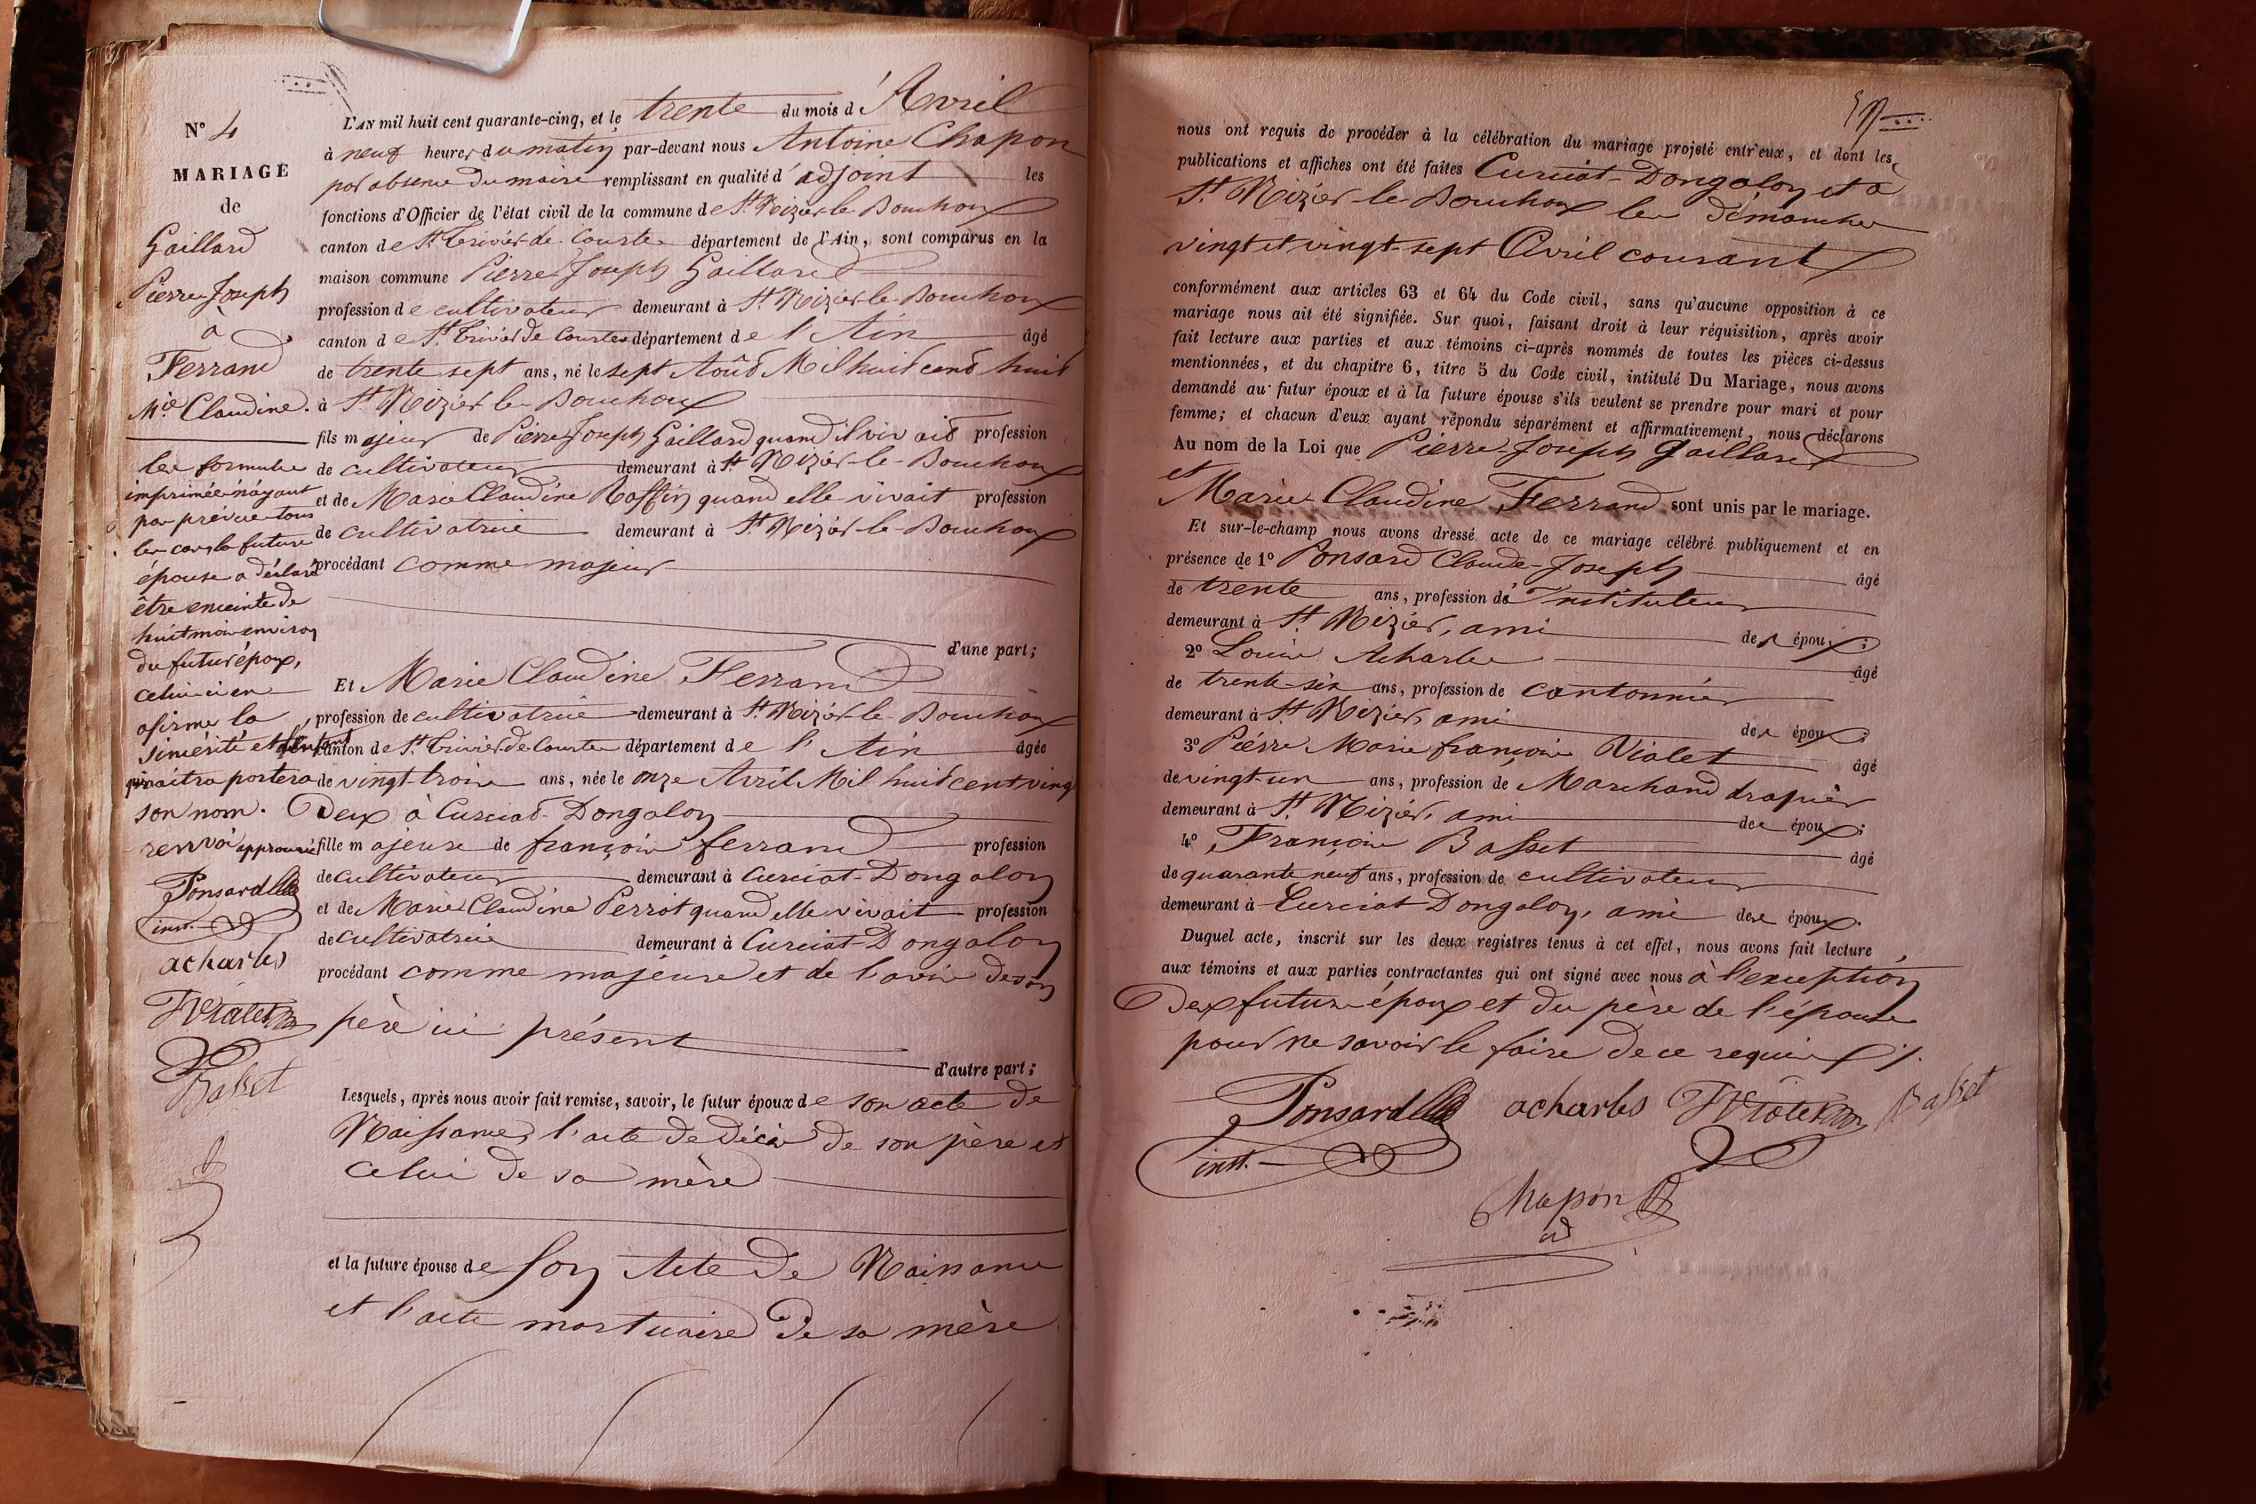 N° 4
MARIAGE
de
Gaillard
Pierre Joseph
à
Ferrand
Mie Claudine.
les formules
imprimées n'ayant
pas prévue tous
les cas, la future
épouse a déclaré
être enceinte de
huit mois environ
du futur époux,
celui-ci en
afirme la
sincérité et l'enfant
qui naitra portera
son nom.
renvoi approuvé
Ponsard
inst.
acharles
Vialet
Basset
L'AN mil huit cent quarante-cinq, et le trente du mois d'Avril
à neuf heures du matin par-devant nous Antoine Chapon
par absence du maire remplissant en qualité d'adjoint les
fonctions d'Officier de l'état civil de la commune de St. Nizier-le-Bouchoux
canton de St. Trivier-de-Courtes département de l'Ain, sont comparus en la
maison commune Pierre Joseph Gaillard
profession de cultivateur demeurant à St. Nizier-le-Bouchoux
canton de St. Trivier de Courtes département de l'Ain âgé
de trente sept ans, né le sept Août Mil huit cent huit
à St. Nizier-le-Bouchoux
fils majeur de Pierre Joseph Gaillard quand il vivait profession
de cultivateur demeurant à St Nizier-le-Bouchoux
et de Marie Claudine Raffin quand elle vivait profession
de cultivatrice demeurant à St. Nizier-le-Bouchoux
procédant comme majeur
d'une part;
Et Marie Claudine Ferrand
profession de cultivatrice demeurant à St. Nizier-le-Bouchoux
canton de St. Trivier de Courtes département de l'Ain âgée
de vingt-trois ans, née le onze Avril Mil huit cent vingt
Deux à Curciat-Dongalon
fille majeure de françois ferrand profession
de cultivateur demeurant à Curciat-Dongalon
et de Marie Claudine Perrot quand elle vivait profession
de cultivatrice demeurant à Curciat-Dongalon
procédant comme majeure et de l'avis de son
père ici présent
d'autre part;
Lesquels, après nous avoir fait remise, savoir, le futur époux de son acte de
Naissance, l'acte de décès de son père et
celui de sa mère
et la future épouse de son Acte de Naissance
et l'acte mortuaire de sa mère
nous ont requis de procéder à la célébration du mariage projeté entr'eux, et dont les
publications et affiches ont été faites Curciat-Dongalon et à
St. Nizier-le-Bouchoux les démanches
vingt et vingt-sept Avril courant
conformément aux articles 63 et 64 du Code civil, sans qu'aucune opposition à ce
mariage nous ait été signifiée. Sur quoi, faisant droit à leur réquisition, après avoir
fait lecture aux parties et aux témoins ci-après nommés de toutes les pièces ci-dessus
mentionnées, et du chapitre 6, titre 5 du Code civil, intitulé Du Mariage, nous avons
demandé au futur époux et à la future épouse s'ils veulent se prendre pour mari et pour
femme; et chacun d'eux ayant répondu séparément et affirmativement, nous déclarons
Au nom de la Loi que Pierre-Joseph Gaillard
et
Marie-Claudine Ferrand sont unis par le mariage.
Et sur-le-champ nous avons dressé acte de ce mariage célébré publiquement et en
présence de 1° Ponsard Claude-Joseph âgé
de trente ans, profession d'Instituteur
demeurant à St. Nizier, ami des époux;
2° Louis Acharles âgé
de trente-six ans, profession de cantonnier
demeurant à St. Nizier, ami des époux;
3° Pierre Marie françois Vialet âgé
de vingt-un ans, profession de Marchand drapier
demeurant à St. Nizier, ami des époux;
4° François Basset âgé
de quarante neuf ans, profession de cultivateur
demeurant à Curciat Dongalon, ami des époux.
Duquel acte, inscrit sur les deux registres tenus à cet effet, nous avons fait lecture
aux témoins et aux parties contractantes qui ont signé avec nous à l'exception
Des futurs époux et du père de l'épouse
pour ne savoir le faire de ce requis ./.
Ponsard acharles Vialet Basset
inst.
Chapon
ad